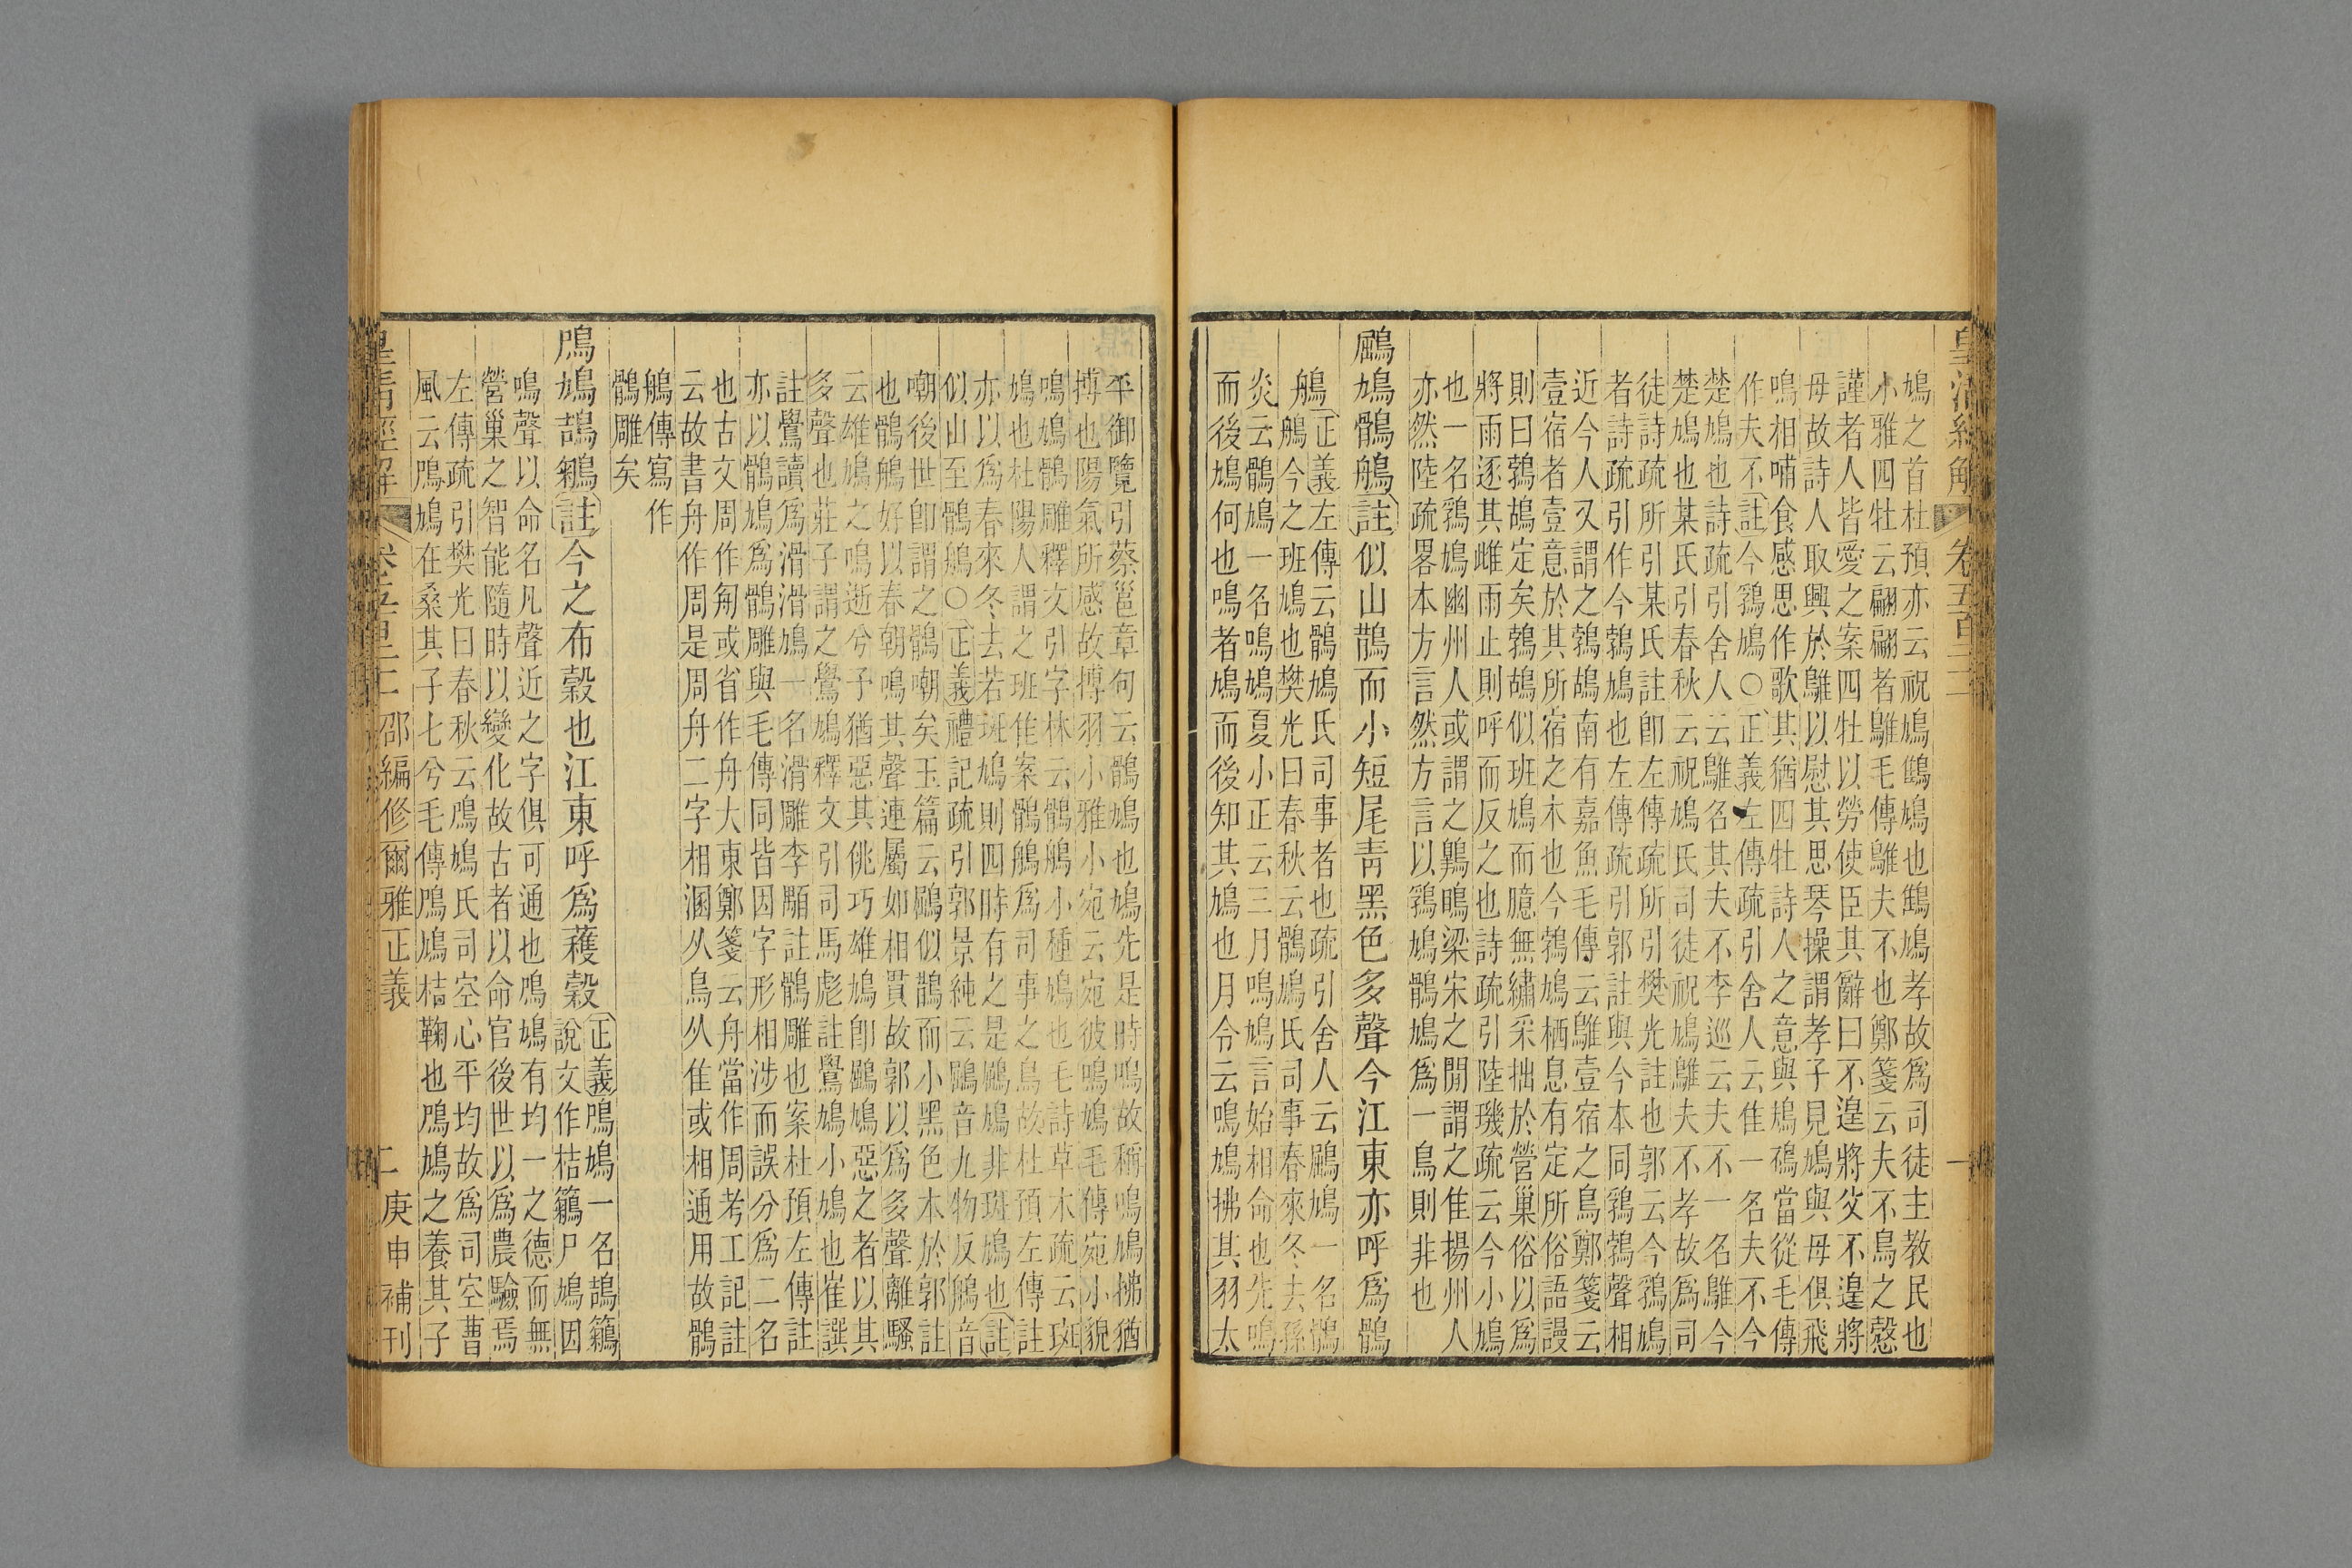 皇清經解 卷五百二二 一
鳩之首杜預亦云祝鳩鷦鳩也鷦鳩孝故爲司徒主教民也
小雅四牡云翩翩者鵻毛傳鵻夫不也鄭箋云夫不鳥之慤
謹者人皆愛之案四牡以勞使臣其辭曰不遑將父不遑將
母故詩人取興於鵻以慰其思琴操謂孝子見鳩與母俱飛
鳴相哺食感思作歌其猶四牡詩人之意與鳩鴀當從毛傳
作夫不註今鶏鳩○正義左傳疏引舍人云隹一名夫不今
楚鳩也詩疏引舍人云鵻名其夫不李巡云夫不一名鵻今
楚鳩也某氏引春秋云祝鳩氏司徒祝鳩鵻夫不孝故爲司
徒詩疏所引某氏註卽左傳疏所引樊光註也郭云今鶏鳩
者詩疏引作今鶉鳩也左傳疏引郭註與今本同鶏鶉聲相
近今人又謂之鶉鴣南有嘉魚毛傳云鵻壹宿之鳥鄭箋云
壹宿者壹意於其所宿之木也今鶉鳩栖息有定所俗語謾
則曰鶉鴣定矣鶉鴣似班鳩而臆無繡采拙於營巢俗以爲
將雨逐其雌雨止則呼而反之也詩疏引陸璣疏云今小鳩
也一名鶏鳩幽州人或謂之鷎鳴梁宋之間謂之隹揚州人
亦然陸疏畧本方言然方言以鶏鳩鶻鳩爲一鳥則非也
鶌鳩鶻鵃註似山鵲而小短尾青黑色多聲今江東亦呼爲鶻
鵃正義左傳云鶻鳩氏司事者也疏引舍人云鶌鳩一名鶻
鵃今之班鳩也樊光曰春秋云鶻鳩氏司事春來冬去孫
炎云鶻鳩一名鳴鳩夏小正云三月鳴鳩言始相命也先鳴
而後鳩何也鳴者鳩而後知其鳩也月令云鳴鳩拂其羽太
平御覽引蔡邕章句云鶻鳩也鳩先是時鳴故稱鳴鳩拂猶
搏也陽氣所感故搏羽小雅小宛云宛彼鳴鳩毛傳宛小貌
鳴鳩鶻雕釋文引字林云鶻鵃小種鳩也毛詩草木疏云斑
鳩也杜陽人謂之班隹案鶻鵃爲司事之鳥故杜預左傳註
亦以爲春來冬去若斑鳩則四時有之是鶌鳩非斑鳩也註
似山至鶻鵃○正義禮記疏引郭景純云鶌音九物反鵃音
嘲後世卽謂之鶻嘲矣玉篇云鶌似鵲而小黑色本於郭註
也鶻鵃好以春朝鳴其聲連屬如相貫故郭以爲多聲離騷
云雄鳩之鳴逝兮予猶惡其佻巧雄鳩卽鶌鳩惡之者以其
多聲也莊子謂之鷽鳩釋文引司馬彪註鷽鳩小鳩也崔譔
註鷽讀爲滑滑鳩一名滑雕李頤註鶻雕也案杜預左傳註
亦以鶻鳩爲鶻雕與毛傳同皆因字形相涉而誤分爲二名
也古文周作匊或省作舟大東鄭箋云舟當作周考工記註
云故書舟作周是周舟二字相溷从鳥从隹或相通用故鶻
鵃傳寫作
鶻雕矣
鳲鳩鴶鵴註今之布穀也江東呼爲穫穀正義鳲鳩一名鴶鵴
說文作桔鵴尸鳩因
鳴聲以命名凡聲近之字俱可通也鳲鳩有均一之德而無
營巢之智能隨時以變化故古者以命官後世以爲農驗焉
左傳疏引樊光曰春秋云鳲鳩氏司空心平均故爲司空曹
風云鳲鳩在桑其子七兮毛傳鳲鳩秸鞠也鳲鳩之養其子
皇清經解 卷五百二二 邵編修爾雅正義 二 庚申補刊